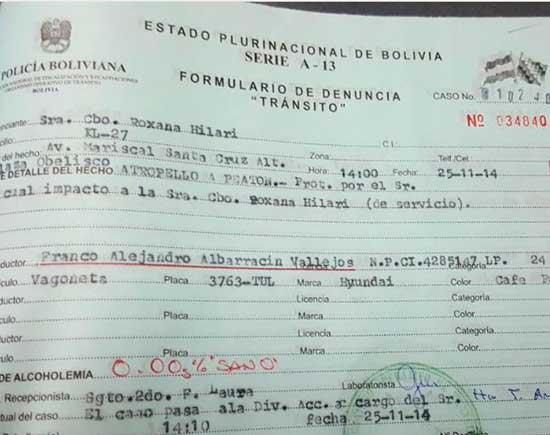 ESTADO PLURINACIONAL DE BOLIVIA
SERIE A-13
POLICÍA BOLIVIANA
BOLIVIA
FORMULARIO DE DENUNCIA
"TRÁNSITO"
CASO No.
Nº 034840
Sra. Cbo. Roxana Hilari
KL-27 C.I.
del hecho Av. Mariscal Santa Cruz Alt. Zona: Telf./Cel.
Obelisco Hora: 14:00 Fecha: 25-11-14
DETALLE DEL HECHO ATROPELLO A PEATON.- Prot. por el Sr.
cial impacto a la Sra. Cbo. Roxana Hilari (de servicio).
ductor Franco Alejandro Albarracin Vallejos N.P.CI. LP. 24
culo Vagoneta Placa 3763-TUL Marca Hyundai Color Cafe
ductor Licencia Categoria
culo Placa Marca Color
ductor Licencia Categoria
culo Placa Marca Color
DE ALCOHOLEMIA 0.00 % "SANO"
Recepcionista Sgto.2do. F. Laura
tual del caso El caso pasa ala Div. Acc. a cargo del Sr.
14:10 fecha 25-11-14